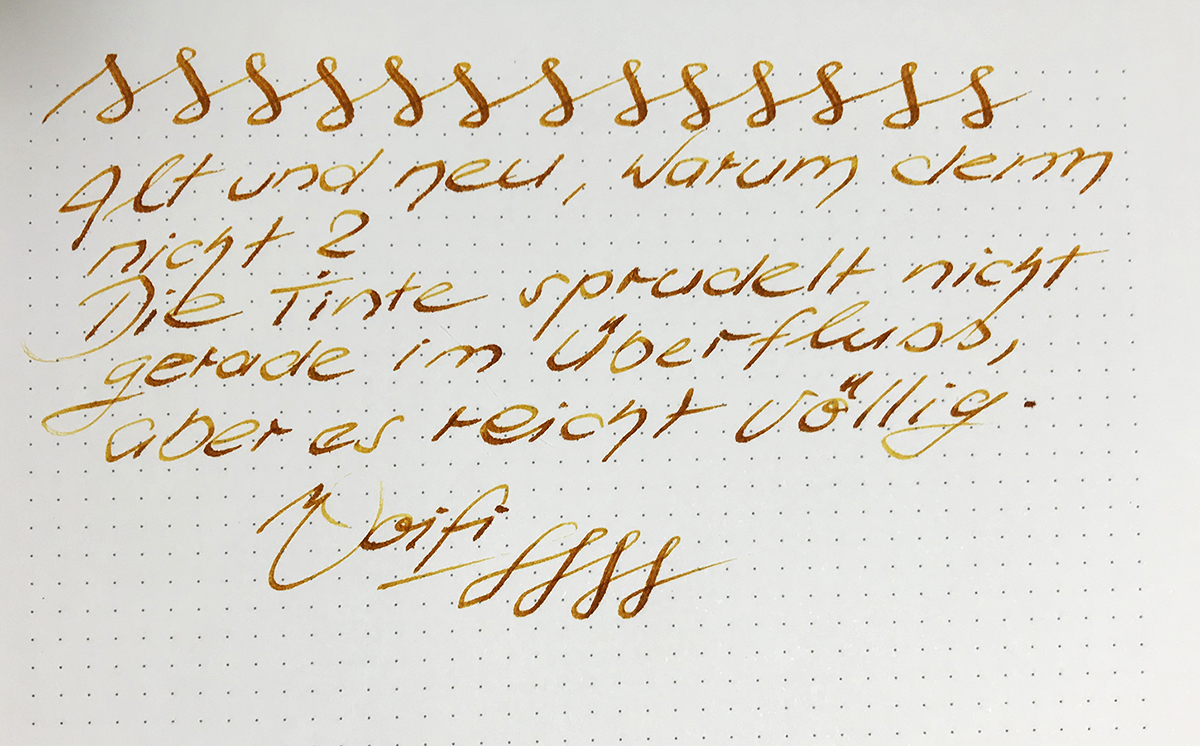 Alt und neu, warum denn
nicht?
Die Tinte sprudelt nicht
gerade im Überfluss,
aber es reicht völlig.
Woifi